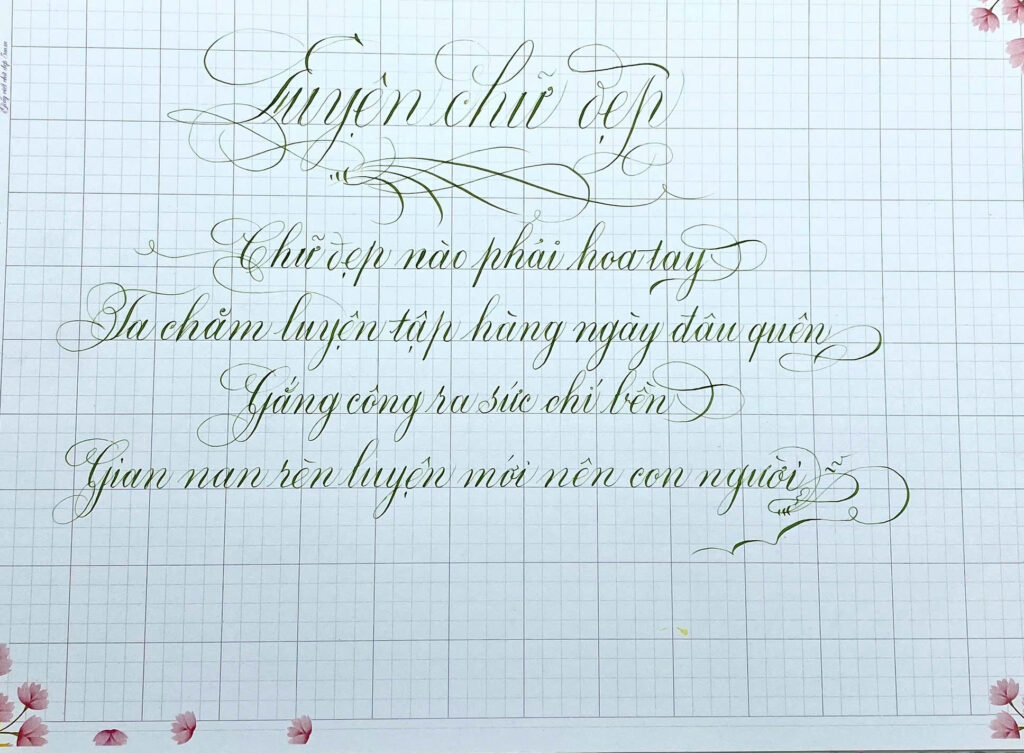 Luyện chữ đẹp
Chữ đẹp nào phải hoa tay
Ta chăm luyện tập hàng ngày đâu quên
Gắng công ra sức chí bền
Gian nan rèn luyện mới nên con người